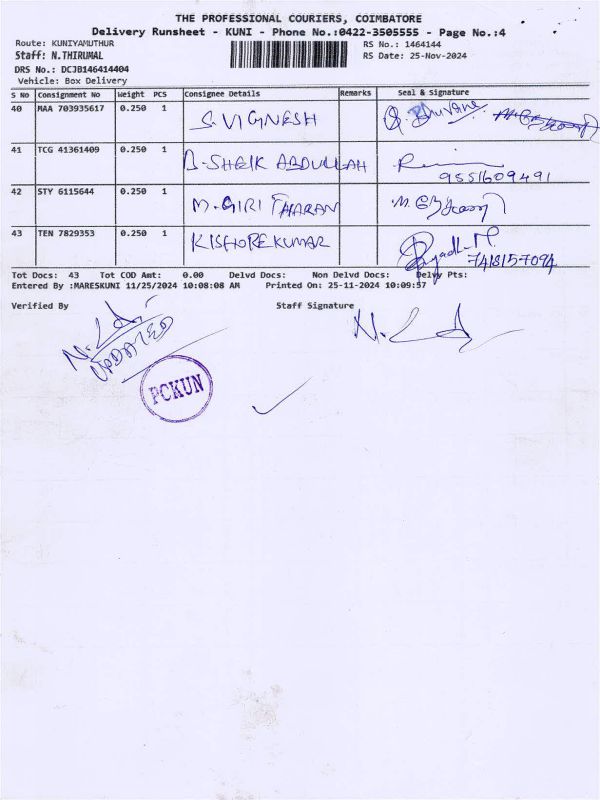 THE PROFESSIONAL COURIERS, COIMBATORE
Delivery Runsheet - KUNI - Phone No.:0422-3505555 - Page No.:4
Route: KUNIYAMUTHUR RS No.: 1464144
Staff: N.THIRUMAL RS Date: 25-Nov-2024
DRS No.: DCJB146414404
Vehicle: Box Delivery
S No Consignment No Weight PCS Consignee Details Remarks Seal & Signature
40 MAA 703935617 0.250 1 S.VIGNESH
41 TCG 41361409 0.250 1 B-SHEIK ABDULLAH
9551609491
42 STY 6115644 0.250 1 M.GIRI THARAN
43 TEN 7829353 0.250 1 KISHORE KUMAR
7418157094
Tot Docs: 43 Tot COD Amt: 0.00 Delvd Docs: Non Delvd Docs: Delvy Pts:
Entered By :MARESKUNI 11/25/2024 10:08:08 AM Printed On: 25-11-2024 10:09:57
Verified By Staff Signature
UPDATED
PCKUN